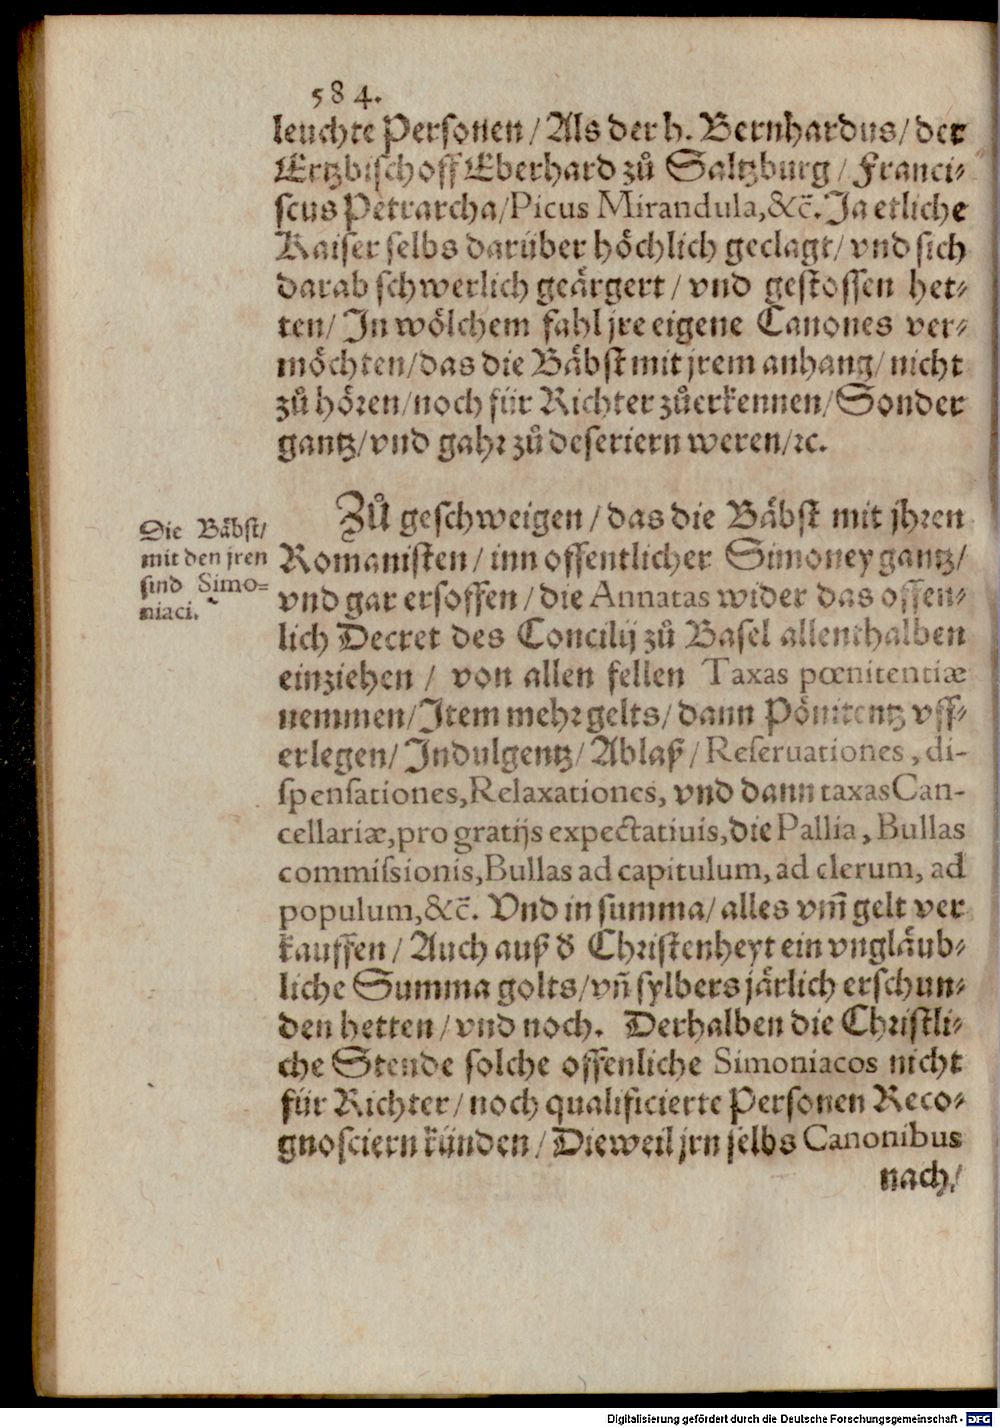 584.
leuchte Personen / Als der h. Bernhardus / der
Ertzbischoff Eberhard zů Saltzburg / Franci-
scus Petrarcha / Picus Mirandula, &c̃. Ja etliche
Kaiser selbs darüber höchlich geclagt / vnd sich
darab schwerlich geärgert / vnd gestossen het-
ten / In wölchem fahl jre eigene Canones ver-
möchten / das die Bäbst mit jrem anhang / nicht
zů hören / noch für Richter zůerkennen / Sonder
gantz / vnd gahr zů deseriern weren / ꝛc.
Zů geschweigen / das die Bäbst mit jhren
Romanisten / inn offentlicher Simoney gantz /
vnd gar ersoffen / die Annatas wider das offen-
lich Decret des Concilij zů Basel allenthalben
einziehen / von allen fellen Taxas pœnitentiæ
nemmen / Item mehr gelts / dann Pönitentz vff-
erlegen / Indulgentz / Ablaß / Reseruationes, di-
spensationes, Relaxationes, vnd dann taxas Can-
cellariæ, pro gratijs expectatiuis, die Pallia, Bullas
commissionis, Bullas ad capitulum, ad clerum, ad
populum, &c̃. Vnd in summa / alles vm̃ gelt ver
kauffen / Auch auß d̾ Christenheyt ein vngläub-
liche Summa golts / vñ sylbers järlich erschun-
den hetten / vnd noch. Derhalben die Christli-
che Stende solche offenliche Simoniacos nicht
für Richter / noch qualificierte Personen Reco-
gnosciern künden / Dieweil jrn selbs Canonibus
nach /
Die Bäbst /
mit den jren
sind Simo-
niaci.
Digitalisierung gefördert durch die Deutsche Forschungsgemeinschaft - DFG